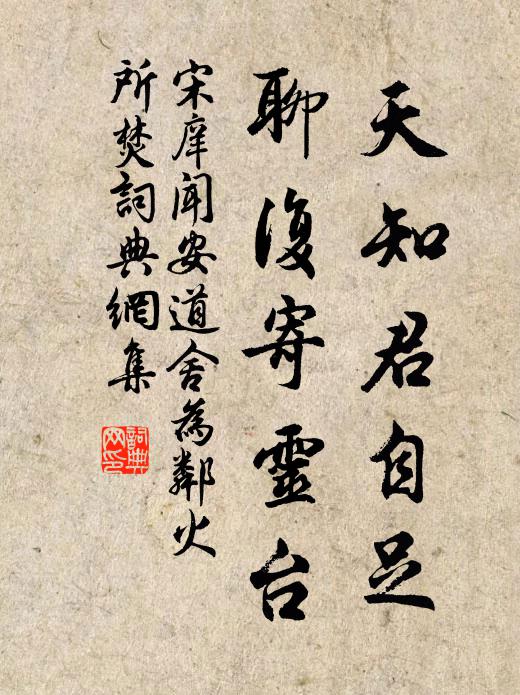 天知君自足
聊復寄靈台
宋庠聞安道舍為鄰火
所焚詞典網集
詞典网印